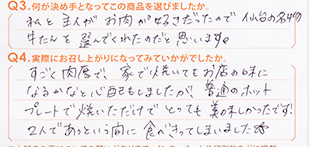 Q3.何が決め手となってこの商品を選びましたか。
私と主人がお肉が好きだったので仙台の名物
牛たんを選んでくれたのだと思います。
Q4.実際にお召し上がりになってみていかがでしたか。
すごく肉厚で、家で焼いてもお店の味に
なるかなと心配もしましたが、普通のホット
プレートで焼いただけでとっても美味しかったです。
2人であっという間に食べきってしまいました